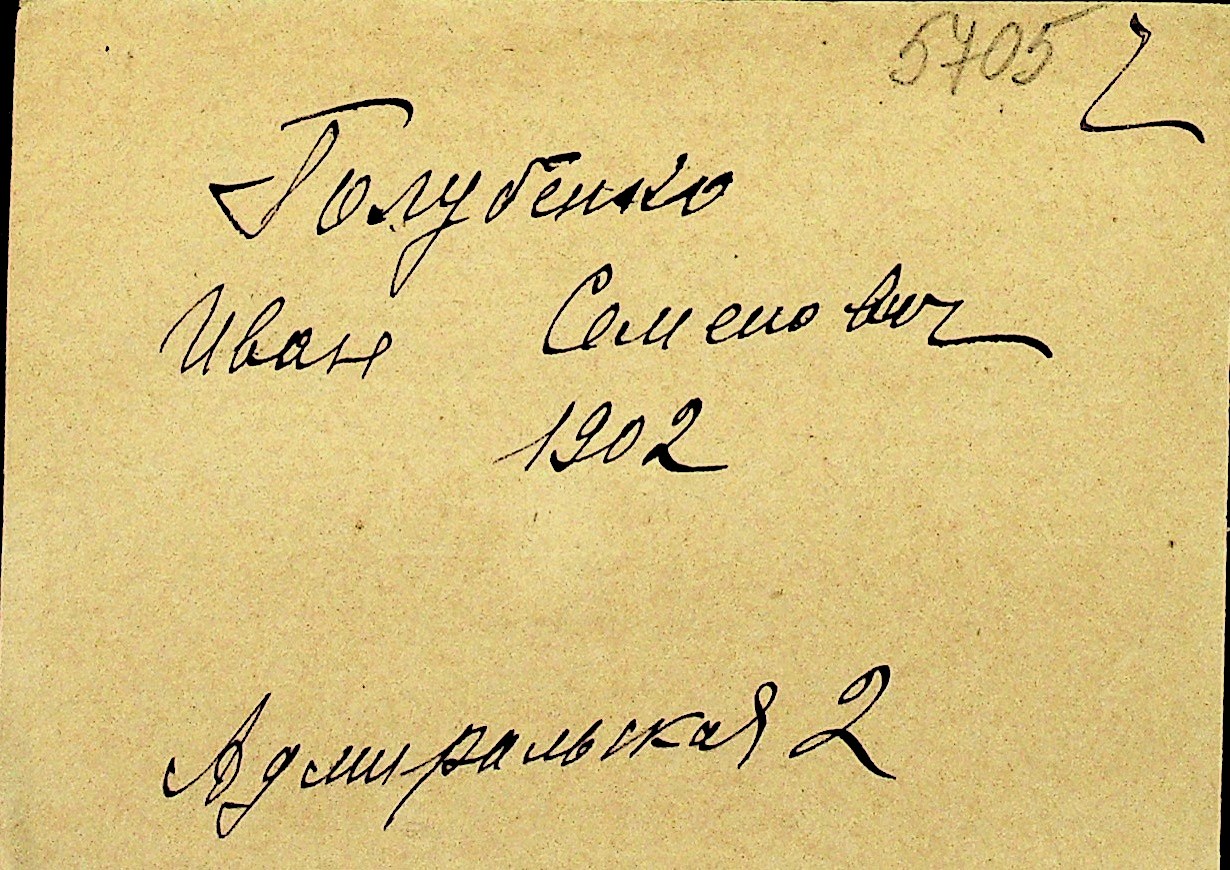 5705 г
Голубенко
Иван Семенович
1902
Адмиральская 2